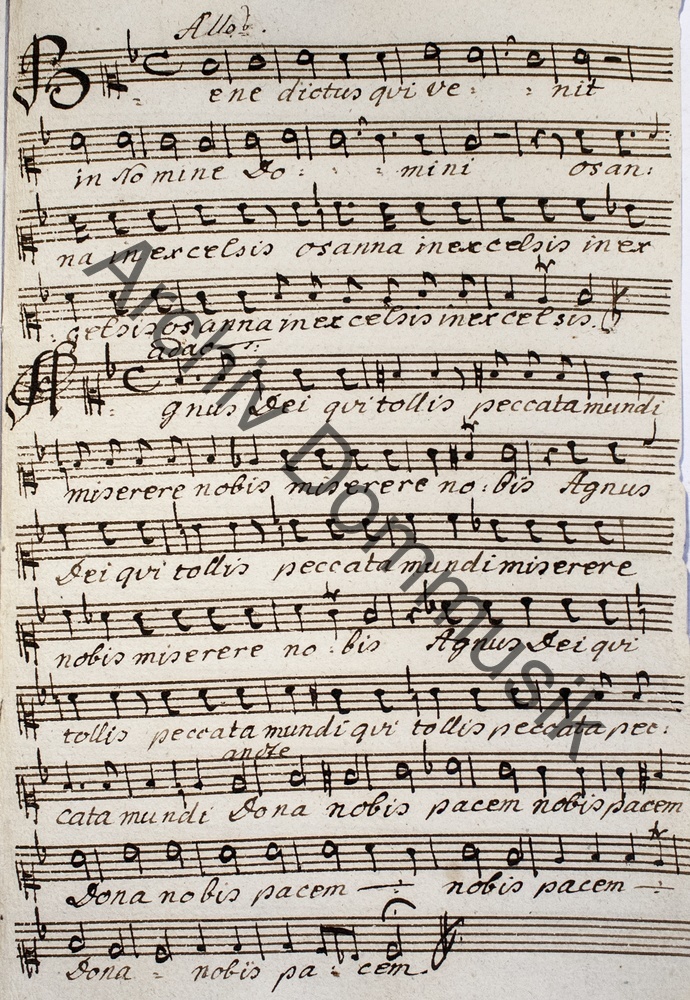 Allo.
Benedictus qui ve - - nit
in Nomine Do - - - mini osan:
na in excelsis osanna in excelsis in ex
: celsis osanna in excelsis in excelsis.
adag
Agnus Dei qvi tollis peccata mundi
miserere nobis miserere no: bis Agnus
Dei qvi tollis peccata mundi miserere
nobis miserere no: bis Agnus Dei qvi
tollis peccata mundi qvi tollis peccata pec:
andte
cata mundi Dona nobis pacem nobis pacem
Dona nobis pacem — : nobis pacem — :
Dona - nobis pa - cem.
Archiv Dommusik